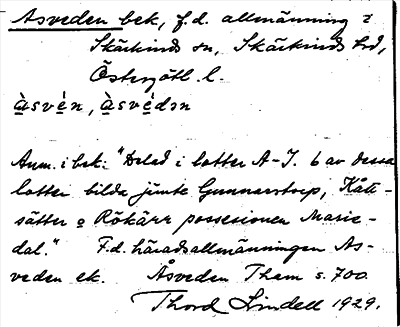 Åsveden bek, f.d. allmänning i
Skärkinds sn, Skärkinds hd,
Östergötl. l.
àsvén, àsvédən
Anm. i bek: "Delad i lotter A-J. 6 av dessa
lotter bilda jämte Gunnarstorp, Kätt-
sätter o Rökärr possesionen Marie-
dal." F.d. häradsallmänningen Ås-
veden ek. Åsveden Tham s. 700
Thord Lindell 1929.